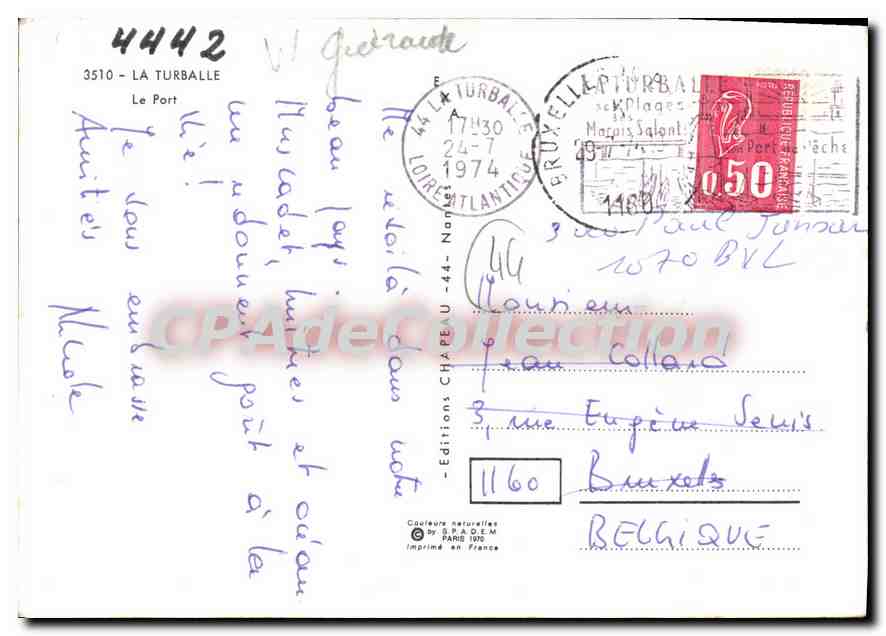 4442
Guérande
3510 - LA TURBALLE
Le Port
Me voilà dans notre
beau pays. Muscadet, huîtres et océan
me redonnent goût à la
vie !
Je vous embrasse
Amitiés
Nicole
- Editions CHAPEAU -44- Nantes
44 LA TURBALLE
A
17H30
24-7
1974
LOIRE ATLANTIQUE
BRUXELLES
29
1160
LA TURBALLE
ses Plages
ses
Marais Salants
son Port de Pêche
0,50
REPUBLIQUE FRANCAISE
3 rue Paul Janson
1070 BXL
44
Monsieur
Jean Collard
3, rue Eugène Denis
1160 Bruxelles
BELGIQUE
Couleurs naturelles
© by S.P.A.D.E.M
PARIS 1970
Imprimé en France
CPAdeCollection